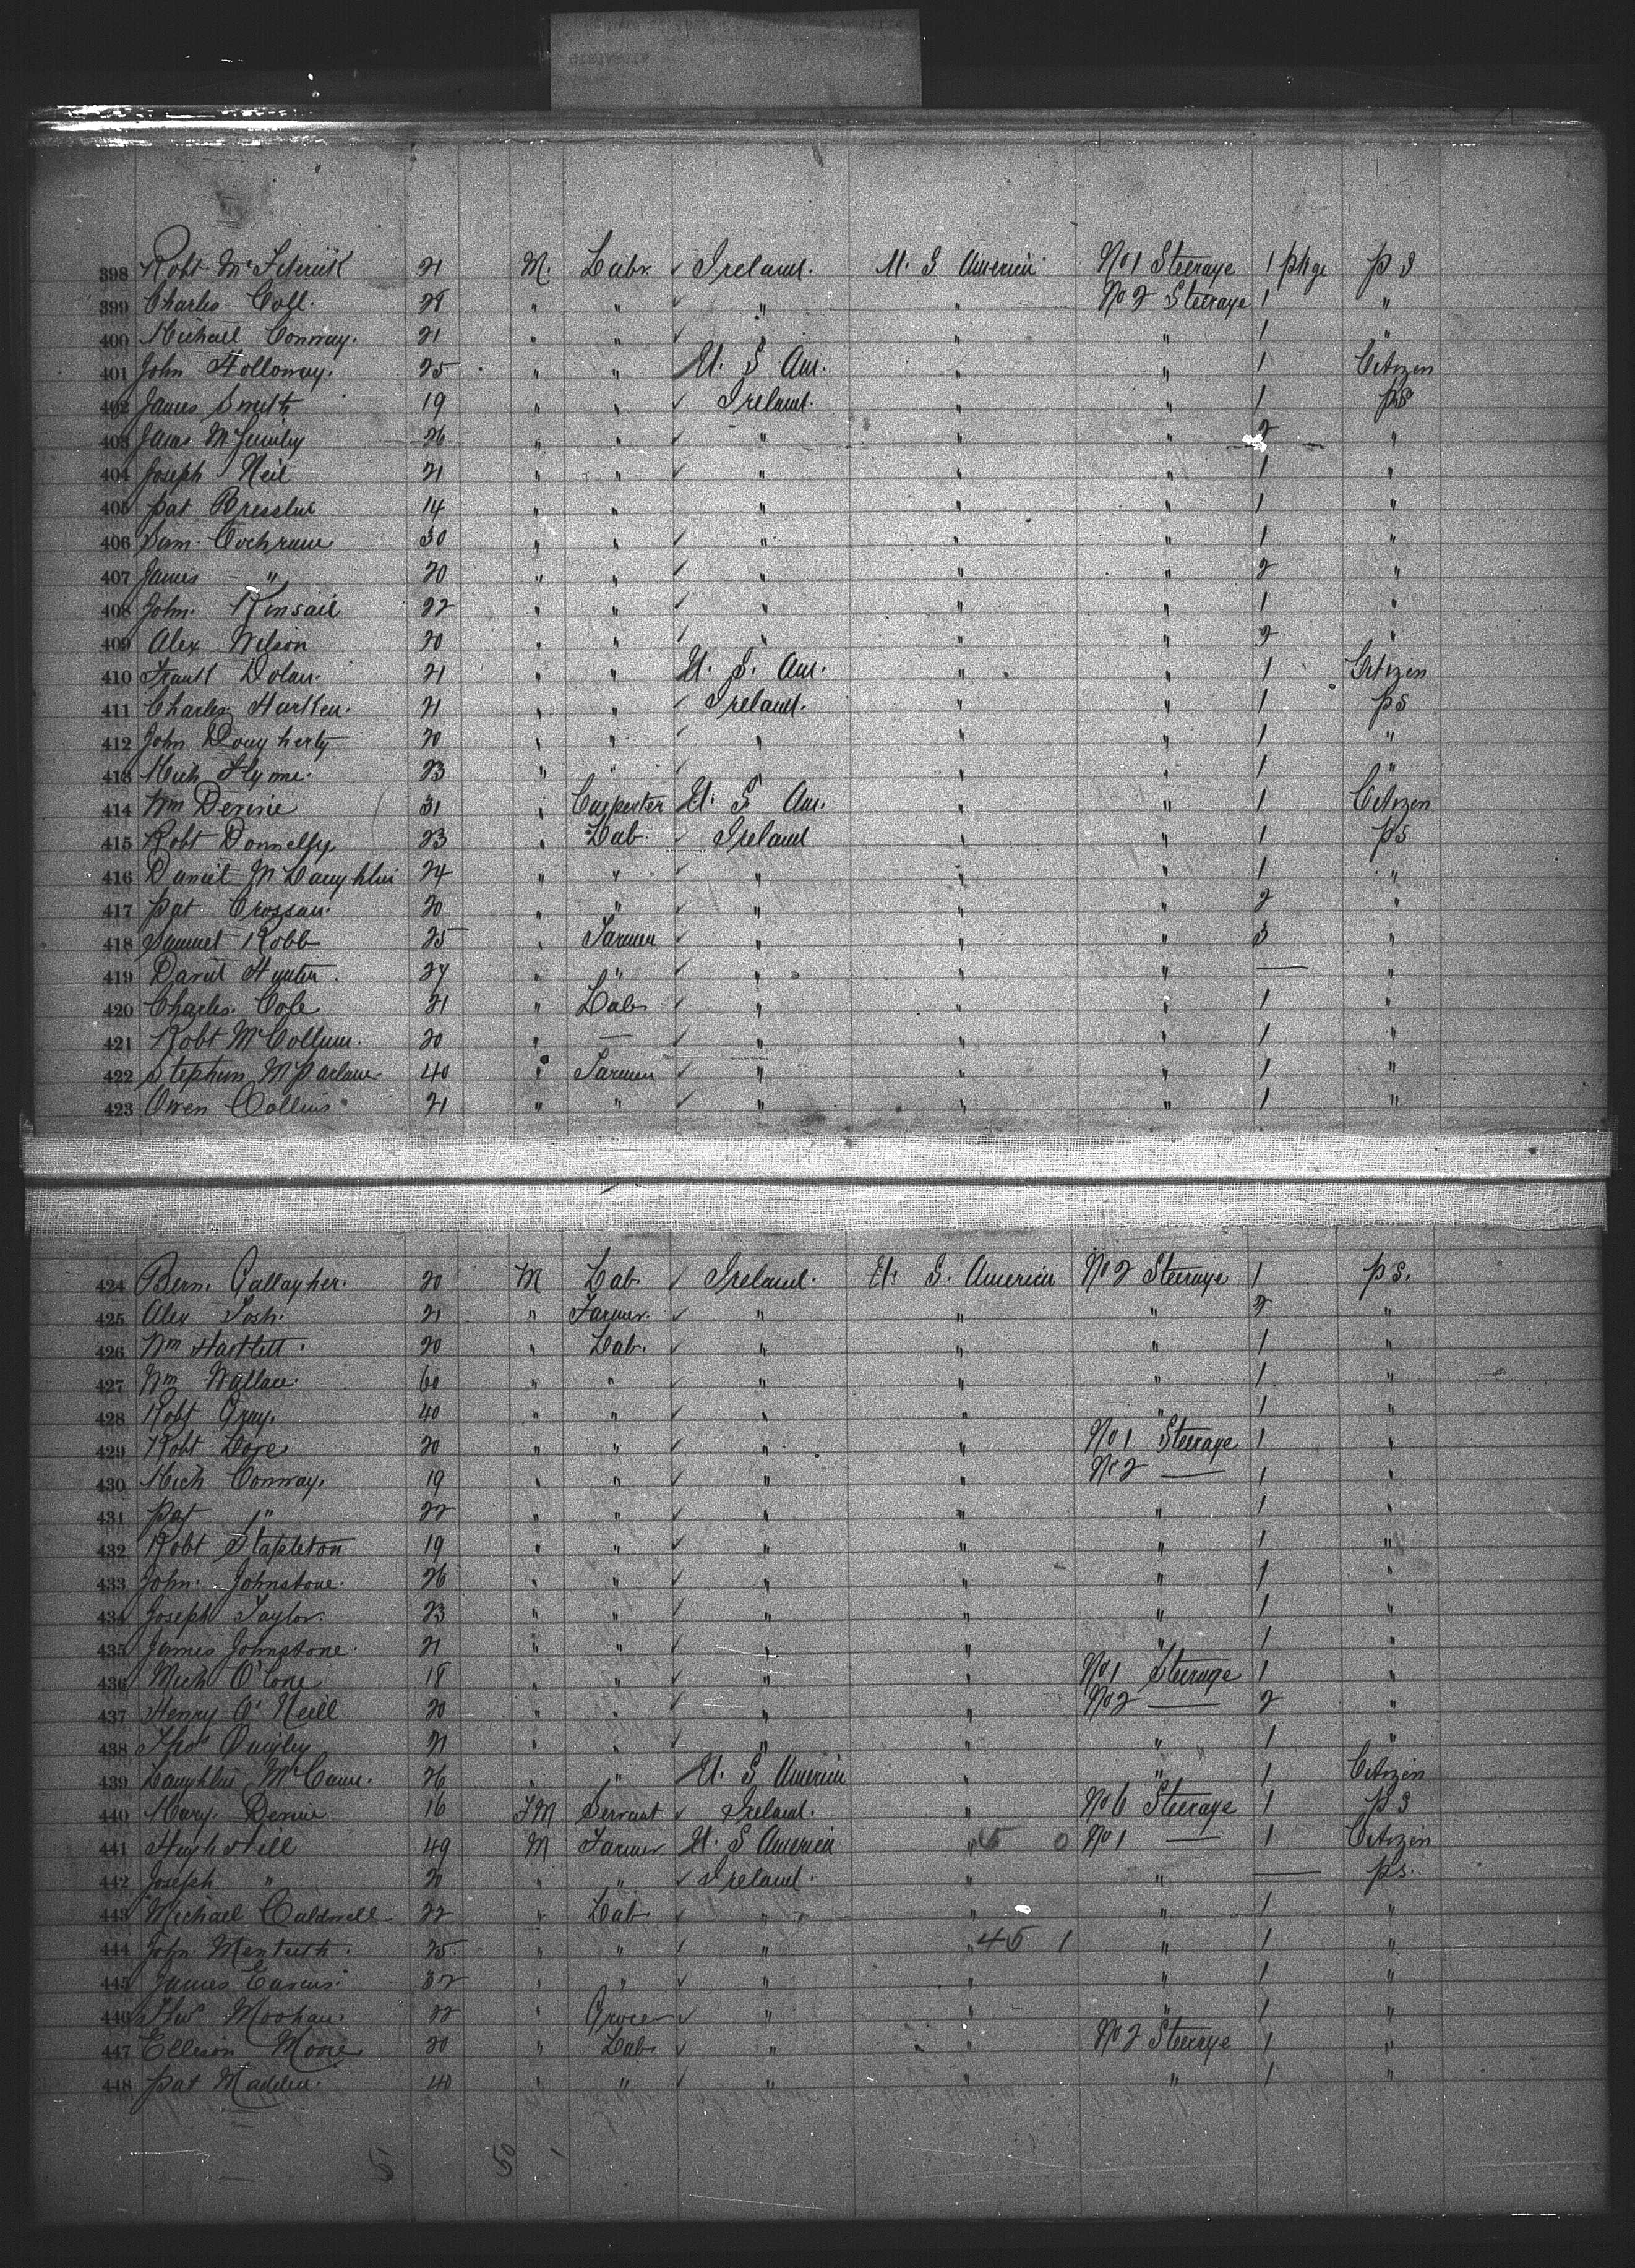 398 Robt McFeterick 21 M. Labr. ✓ Ireland. U. S America No 1 Steerage 1 pkge p S
399 Charles Coll. 28 " " ✓ " " No 2 Steerage 1 "
400 Michael Conway. 21 " " ✓ " " " 1 "
401 John Holloway. 25 " " U. S Am. " " 1 Citizen
402 James Smith 19 " " ✓ Ireland. " " 1 pS
403 Jas 26 " " ✓ " " " 2 "
404 Joseph Neil 21 " " ✓ " " " 1 "
405 Pat 14 " " " " " 1 "
406 Sam. Cochrane 30 " " ✓ " " " 1 "
407 James " 20 " " ✓ " " " 2 "
408 John. Kinsail 22 " " ✓ " " " 1 "
409 Alex Wilson 20 " " ✓ " " " 2 "
410 Frank Dolan. 21 " " U. S. Am. " " 1 Citizen
411 Charles Harken. 21 " " ✓ Ireland. " " 1 ps
412 John Dougherty 20 " " ✓ " " " 1 "
413 Mich 23 " " ✓ " " " 1 "
414 Wm 31 " Carpenter U. S Am. " " 1 Citizen
415 Robt Donnelly 23 " Lab. ✓ Ireland " " 1 ps
416 Daniel McLaughlin 24 " " ✓ " " " 1 "
417 Pat Crossan. 20 " " ✓ " " " 2 "
418 Samuel Robb 25 " Farmer ✓ " " " 3 "
419 David Hunter. 27 " " ✓ " " " — "
420 Charles. Cole 21 " Lab ✓ " " " 1 "
421 Robt McCollum. 20 " — ✓ " " " 1 "
422 Stephen McParlane 40 " Farmer ✓ " " " 1 "
423 Owen Collins 21 " " ✓ " " " 1 "
424 Bern. Gallagher. 20 M Lab. ✓ Ireland. U. S. America No 2 Steerage 1 p s.
425 Alex Tosh. 21 " Farmer. ✓ " " " 2 "
426 Wm Hartlett. 20 " Lab. ✓ " " " 1 "
427 Wm Wallace. 60 " " ✓ " " " 1 "
428 Robt Gray. 40 " " ✓ " " " 1 "
429 Robt 20 " " ✓ " " No 1 Steerage 1 "
430 Mich Conway. 19 " " ✓ " " No 2 — 1 "
431 Pat " 22 " " ✓ " " " 1 "
432 Robt Stapleton 19 " " ✓ " " " 1 "
433 John. Johnstone. 26 " " ✓ " " " 1 "
434 Joseph Taylor. 23 " " ✓ " " " 1 "
435 James Johnstone. 21 " " ✓ " " " 1 "
436 Mich 18 " " ✓ " " No 1 Steerage 1 "
437 Henry O'Neill 20 " " ✓ " " No 2 — 2 "
438 Thos Quigley 21 " " ✓ " " " 1 "
439 Laughlin McCann. 26 " " U. S America " " 1 Citizen
440 Mary. 16 FM Servant ✓ Ireland. " No 6 Steerage 1 p S
441 Hugh Hill 49 M Farmer U. S America " 45 0 No 1 — 1 Citizen
442 Joseph " 20 " " ✓ Ireland. " " — ps.
443 Michael Caldwell 22 " Lab ✓ " " " 1 "
444 John Menteith. 25. " " ✓ " " 45 1 " 1 "
445 James 32 " " ✓ " " " 1 "
446 Moohan. 22 " Grocer ✓ " " " 1 "
447 Ellison Moore 20 " Lab. ✓ " " No 2 Steerage 1 "
448 Pat Madden. 40 " " ✓ " " " 1 "
5 50 1